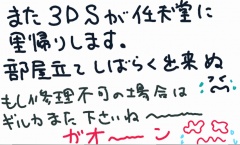 また3DSが任天堂に
里帰りします。
部屋立てしばらく出来ぬ
もし修理不可の場合は
ギルカまた下さいね〜〜〜
ガオ〜〜ン